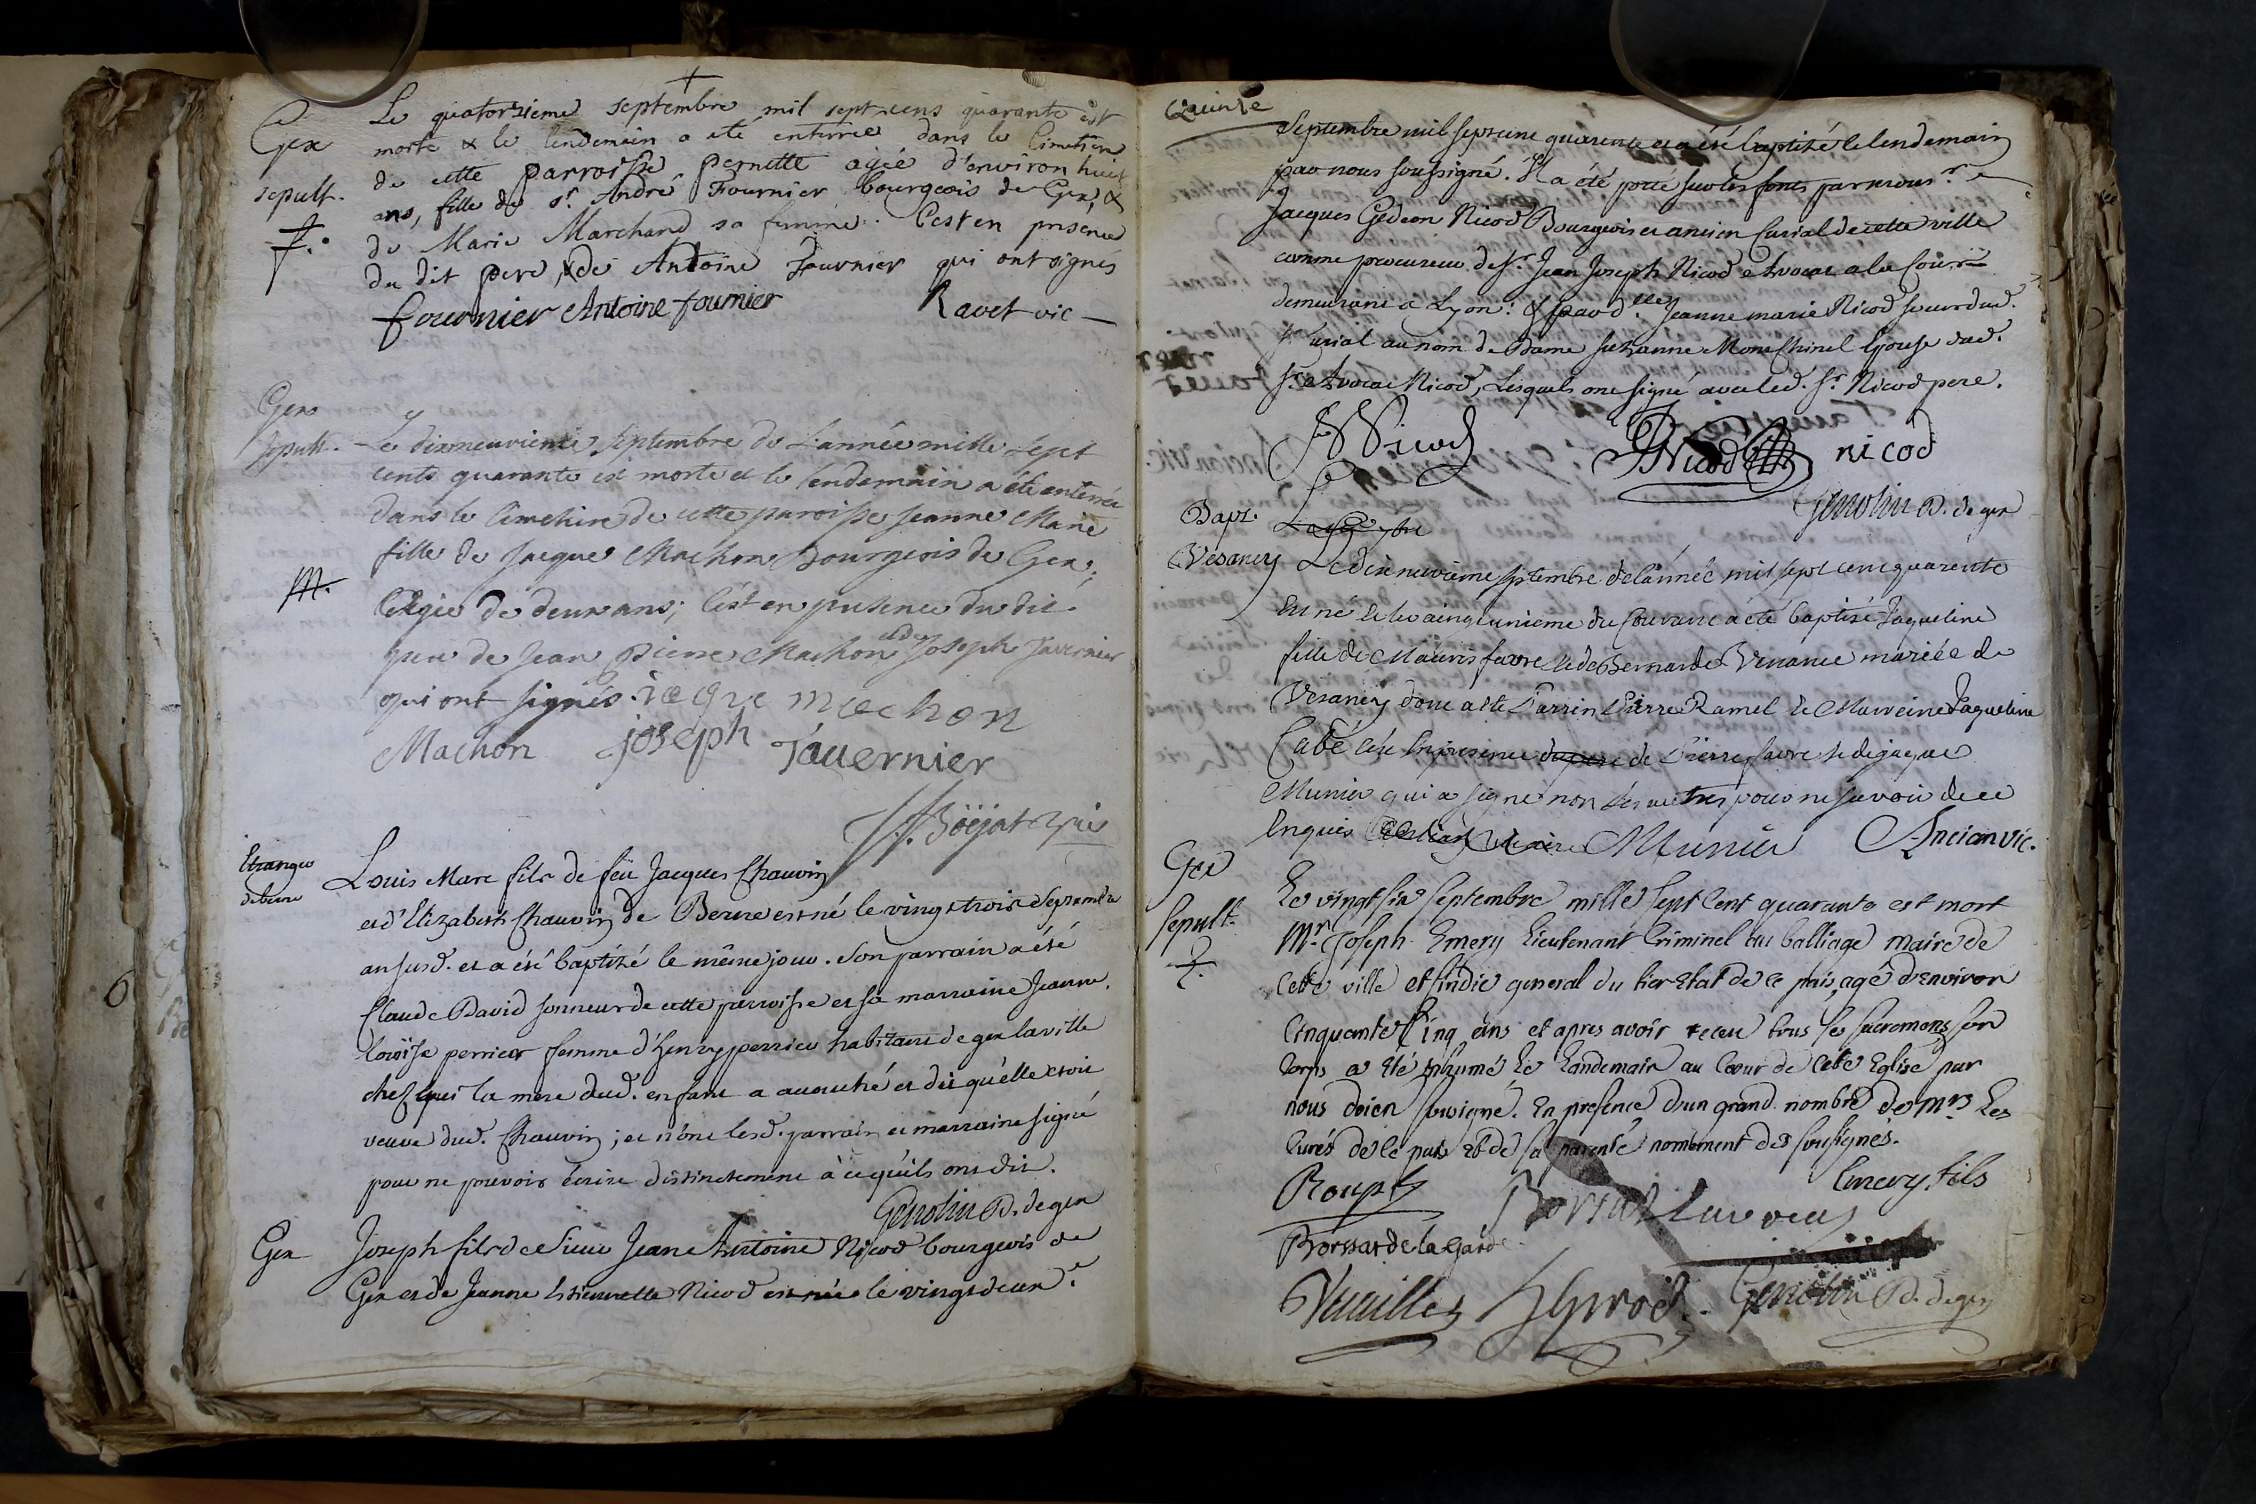 Gex
sepult.
Le quatorzieme septembre mil sept cens quarante est
morte & le lendemain a eté enterrée dans le Cimetiere
de cette parroisse pernette agée d'environ huit
ans, fille de sr. André Fournier bourgeois de Gex, &
de Marie Marchand sa femme. C'est en presence
du dit pere, & de Antoine Fournier qui ont signés
fournier Antoine fournier Ravet vic
Gex
sepult.
Le dixneuvieme septembre de L'année mille sept
cents quarante est morte et le lendemain a été enterrée
dans le Cimetiere de cette paroisse Jeanne Marie
fille de Jacque Machon Bourgeois de Gex,
M.
Aagée de deux ans; c'est en presence du dit
pere de Jean Pierre Machon et de Joseph Tavernier
qui ont signés. iacque machon
Machon joseph Tauernier
Etranger
de berne
Louis Marc fils de feü Jacques Chauvin
et d'Elizabeth Chauvin de Berne est né le vingt trois Septembre
an susd. et a été baptizé le même jour. Son parrain a été
Claude David sonneur de cette parroisse et sa marraine Jeanne
Loüise perrier femme d'henry perrier habitant de gex la ville
chez qui la mere dud. enfant a accouché et dit qu'elle etoit
veuve dud. Chauvin; et n'ont lesd. parrain et marraine signé
pour ne pouvoir écrire distinctement à ce qu'ils ont dit.
Genolin D. de gex
Gex
Joseph fils de Sieur Jean Antoine Nicod bourgeois de
Gex et de Jeanne Estiennette Nicod est née le vingt deux
Quinze
Septembre mil sept cent quarente et a été baptizé le lendemain
par nous soussigné. Il a été porté sur les fonts par mons.r
Jacques Gedeon Nicod Bourgeois et ancien Curial de cette ville
comme procureur de Sr. Jean Joseph Nicod Avocat a la Cour
demeurant a Lyon: & par d.lle Jeanne marie Nicod soeur dud.
Sr. Curial au nom de Dame Suzanne Epouse dud.
Sr. Avocat Nicod, Lesquels ont signé avec led. Sr. Nicod pere.
Nicod Nicod nicod
Genolin D. de gex
Bapt.
Vesancy
Le dixneuvieme septembre de l'année mil sept cent quarente
est né et le vaingt unieme du Courant a eté baptizé Jaqueline
fille de Mauris favre et de Bernarde Venance mariée de
Vesancy dont a été Parrin Pierre Ramel et Marreine Jaqueline
en presence du pere de Pierre favre et de jaque
Munier qui a signé non les autres pour ne savoir de ce
Enquis Munier Ancian vic.
Gex
sepult.
Le vingt six septembre mille sept Cent quarante est mort
Mr. Joseph Emery Lieutenant Criminel au balliage maire de
Cette ville et sindic general du tier Etat de ce pais, agé d'environ
Cinquante Cinq ans et apres avoir receu tous ses sacremens son
Corps a Eté inhumé le landemain au Cœur de Cette Eglise par
nous doien sousigné. En presence d'un grand nombre de mrs. les
Curés de ce païs et de sa parenté nomement des sousignés.
Roup Emery fils
Borssat de la Garde
Vuaillet Girod. Genolin D. de gex